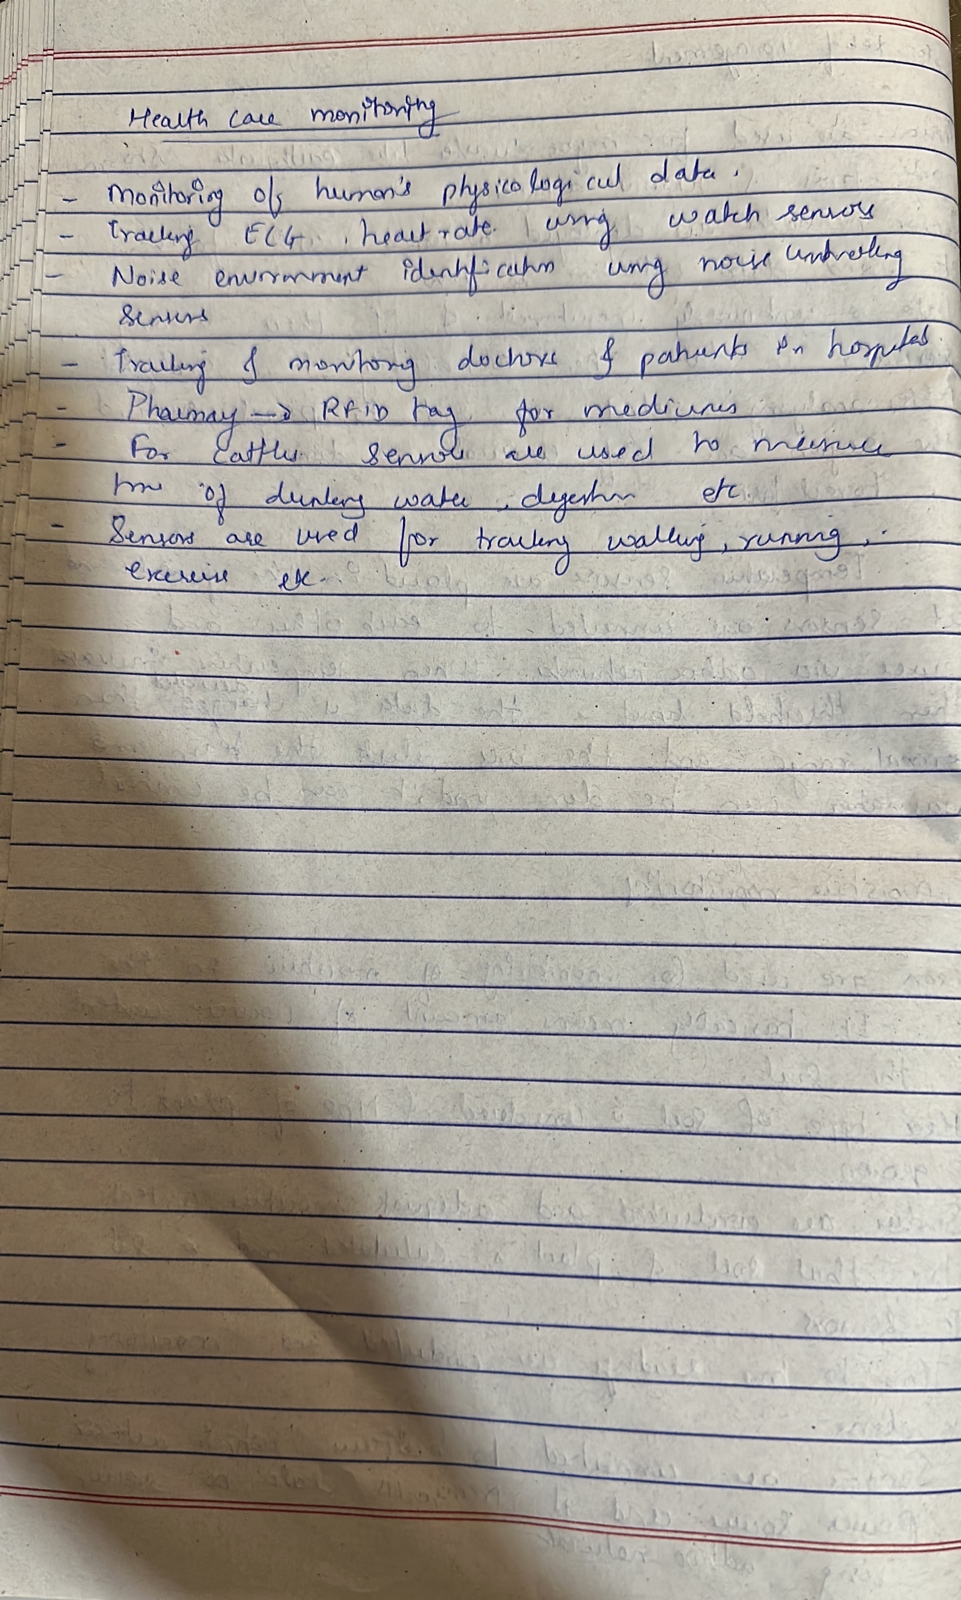 Health care monitoring
- Monitoring of human's physicological data.
- Tracking ECG, heart rate using watch sensors
- Noise environment identification using noise
sensors
- Tracking & monitoring doctors & patients in hospital.
- Pharmay → RFID tag for medicines
- For Cattles sensors are used to measure
time of drinking water, digestion etc.
- Sensors are used for tracking walking, running,
exercise etc.